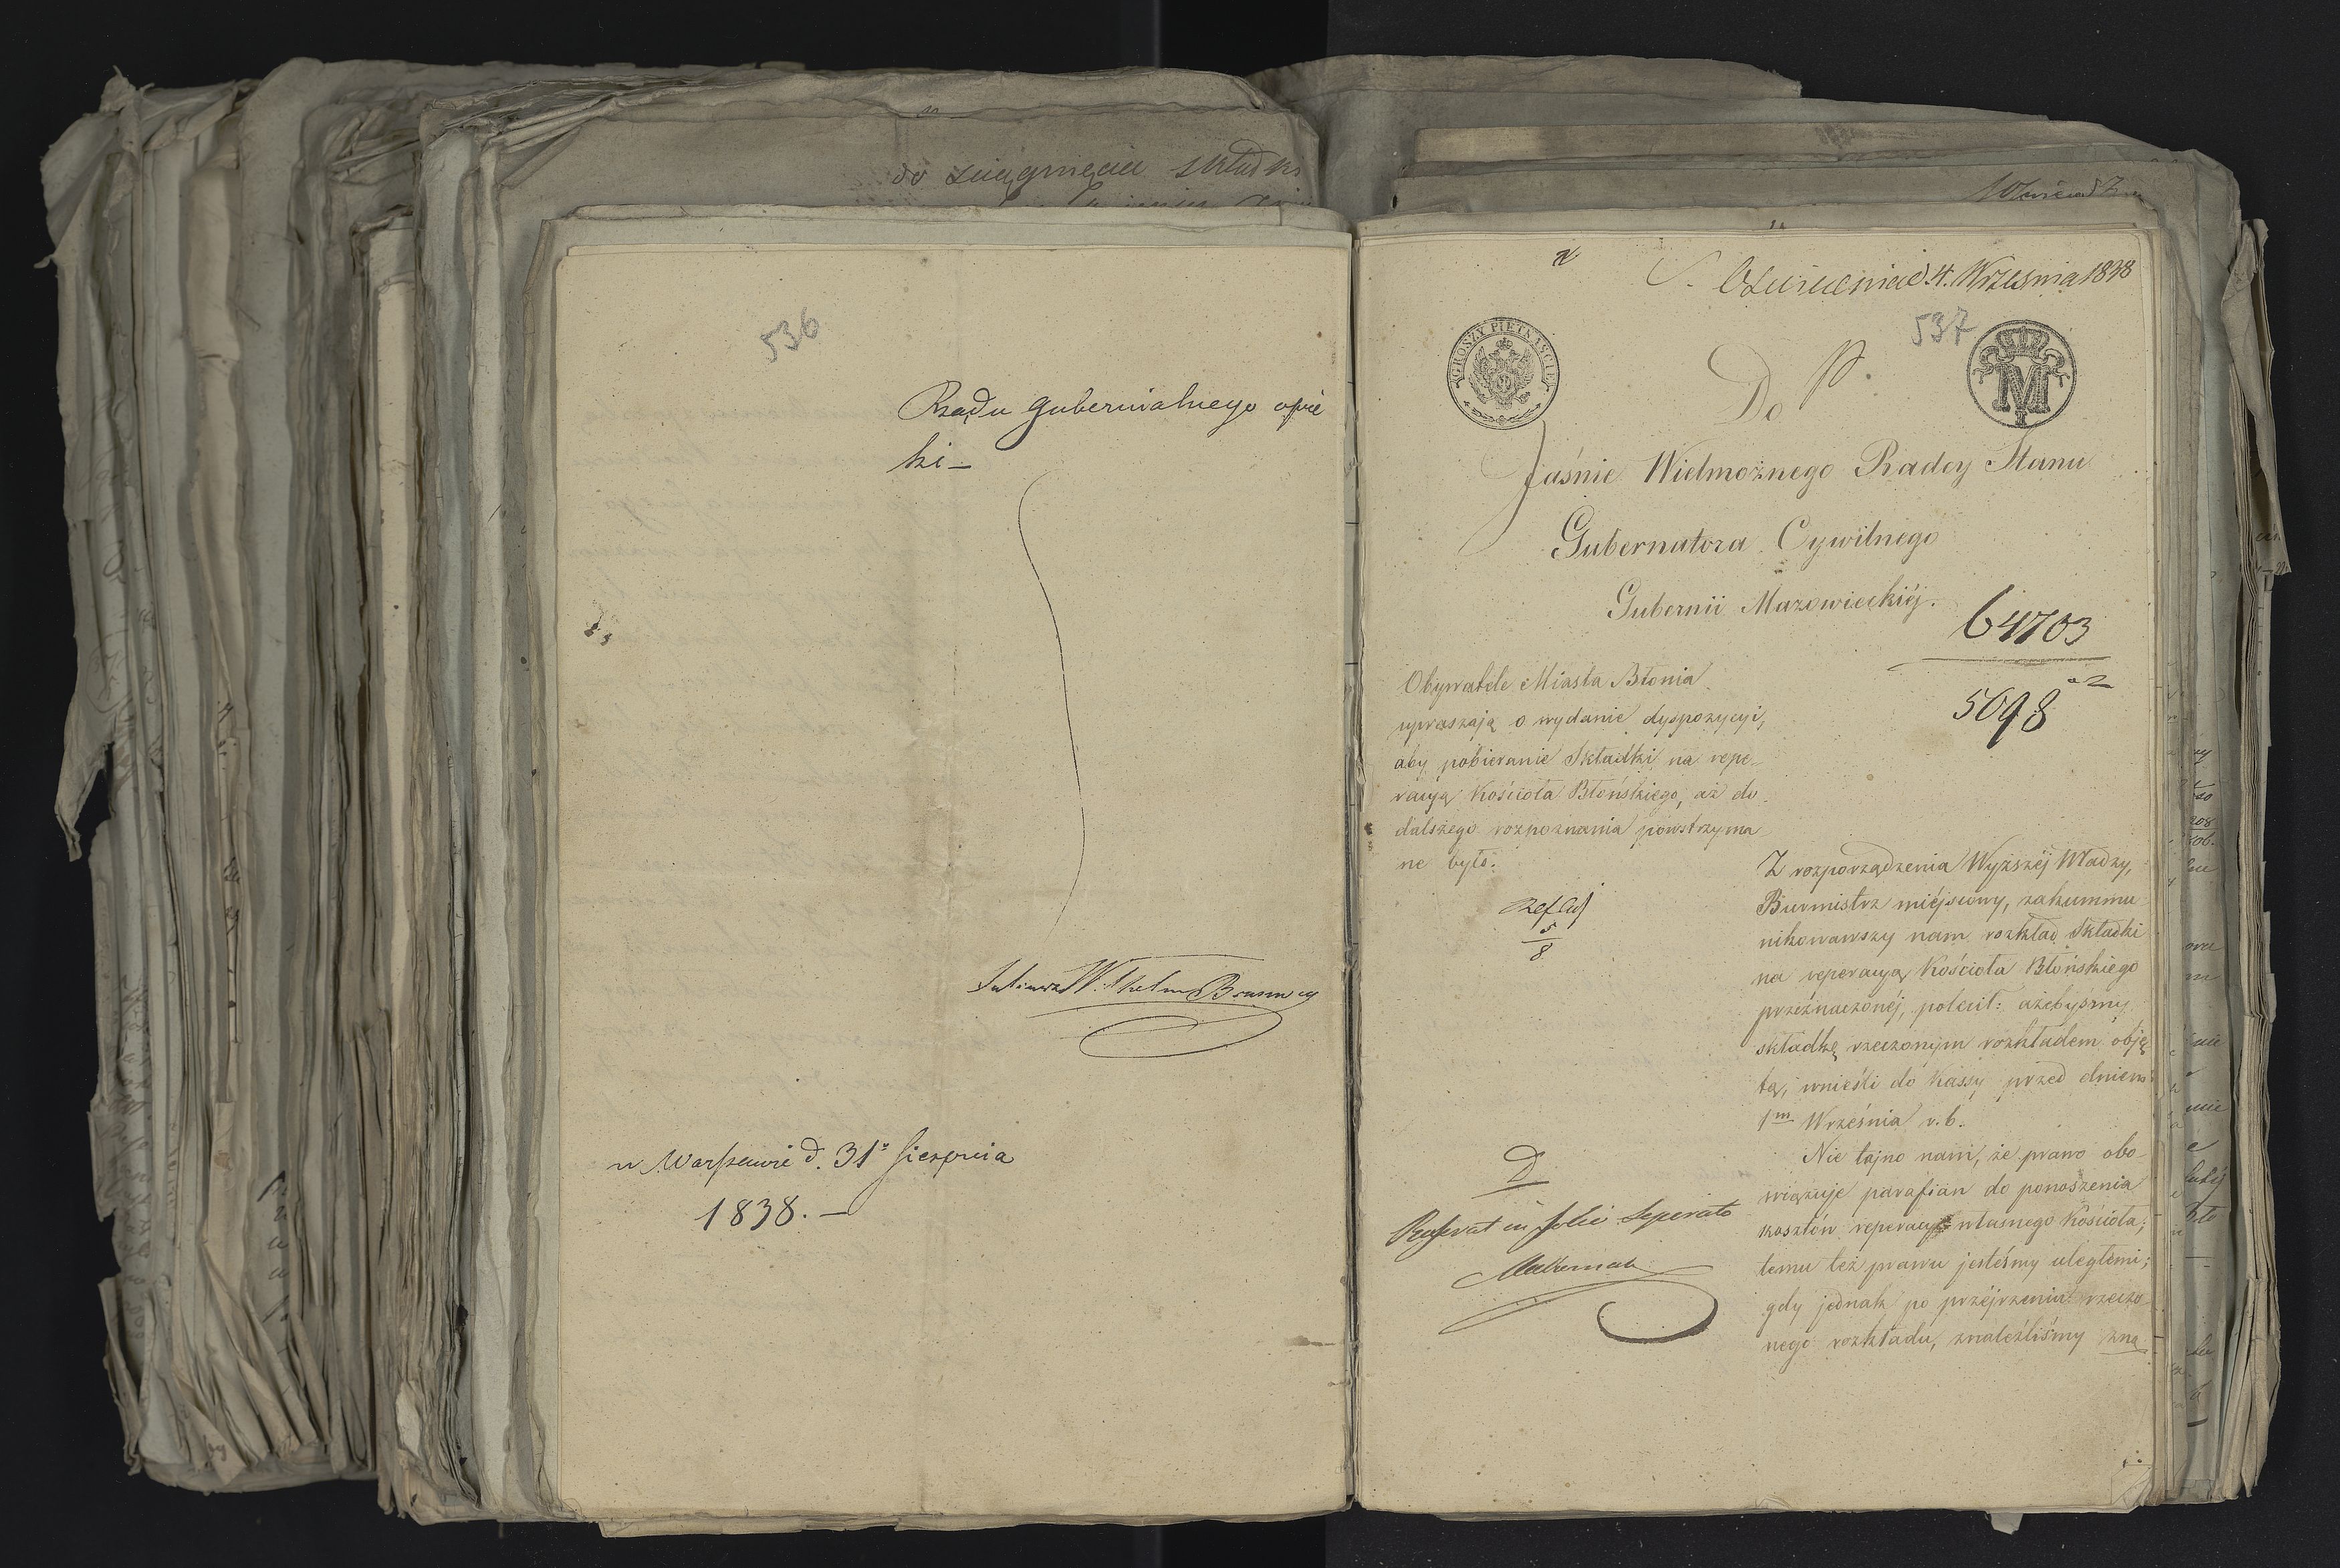 do zaciągnięcia składki
536
Rządu gubernialnego opie
ki –
Juliusz Wilhelm Brunwey
w Warszawie d. 31º Sierpnia
1838. –
d. 4. Września 1838
537
GROSZY PIĘTNAŚCIE
M
Do
Jaśnie Wielmożnego Radcy Stanu
Gubernatora Cywilnego
Gubernii Mazowieckiéj.
64703
5098
Obywatele Miasta Błonia
upraszają o wydanie dyspozycyi,
aby pobieranie Składki na repe-
racyą Kościoła Błońskiego, aż do
dalszego rozpoznania powstrzyma
ne było.
5
8
Z rozporządzenia Wyższéj Władzy,
Burmistrz miéjscowy, zakommu-
nikowawszy nam rozkład Składki
na reperacyą Kościoła Błońskiego
przéznaczonéj, polecił: ażebyśmy
składkę rzeczonym rozkładem obję
tą, wnieśli do Kassy przed dniem
1m Września r. b.
Nie tajno nam, że prawo obo-
wiązuje parafian do ponoszenia
kosztów reperacyi własnego Kościoła;
temu też prawu jesteśmy uległemi;
gdy jednak po przéjrzeniu rzeczo-
nego rozkładu, znaleźliśmy zna
D
in folio Seperato